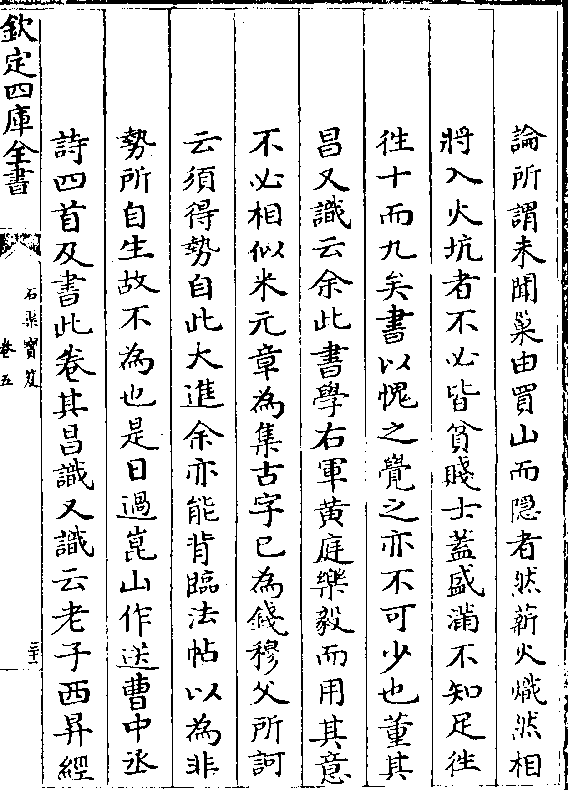 論所謂未聞巢由買山而隱者然薪火熾然相
將入火坑者不必皆貧賤士蓋盛滿不知足徃
徃十而九矣書以愧之覺之亦不可少也董其
昌又識云余此書學右軍黄庭樂毅而用其意
不必相似米元章為集古字已為錢穆父所訶
云須得勢自此大進余亦能背臨法帖以為非
勢所自生故不為也是日過崑山作送曹中丞
詩四首及書此卷其昌識又識云老子西昇經
欽定四庫全書
石渠寶笈
卷五